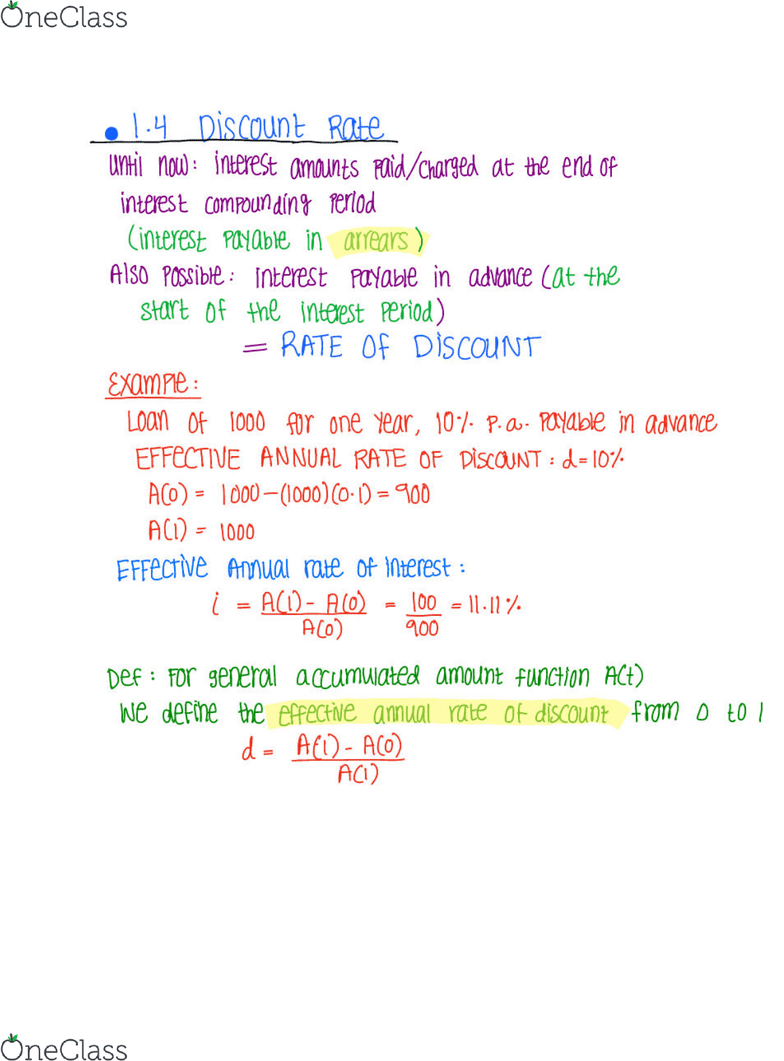 OneClass
• 1.4 Discount Rate
Until now: interest amounts paid/charged at the end of
interest compounding period
(interest payable in arrears)
Also possible: interest payable in advance (at the
start of the interest period)
= RATE OF DISCOUNT
Example:
Loan of 1000 for one year, 10% p.a. payable in advance
EFFECTIVE ANNUAL RATE OF DISCOUNT: d=10%
A(0) = 1000-(1000)(0.1) = 900
A(1) = 1000
Effective Annual rate of interest:
i = A(1) - A(0) / A(0) = 100 / 900 = 11.11%
Def: For general accumulated amount function A(t)
We define the effective annual rate of discount from 0 to 1
d = A(1) - A(0) / A(1)
OneClass